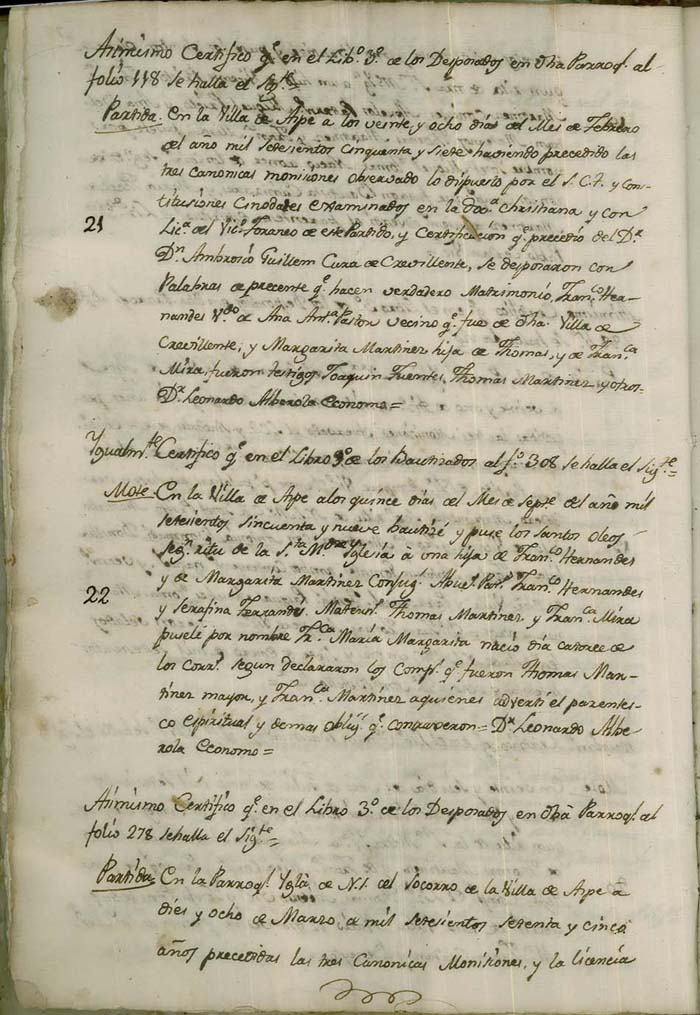 Asimismo Certifico q.e en el Lib.o 3.o de los Desposados en dha Parroq.l al
folio 118 se halla el sig.te
Partida. En la Villa de Aspe a los veinte, y ocho dias del Mes de Febrero
del año mil setesientos cinquenta y siete haviendo precedido las
tres canonicas monisiones observado lo dispuesto por el S. C. T. y Cons-
titusiones Cinodales examinados en la Doc.a Christiana y con
21
Lic.a del Vic.o Foraneo de este Partido, y Certificacion q.e precedió del D.r
D.n Ambrosio Guillem Cura de Crevillente, se desposaron con
Palabras de precente q.e hacen verdadero Matrimonio, Fran.co Her-
nandes V.do de Ana Ant.a Paston vecino q.e fue de dha. Villa de
Crevillente, y Margarita Martinez hija de Thomas, y de Fran.ca
Mira, fueron testigos Joaquin Fuentes, Thomas Martinez y otros-
D.r Leonardo Alberola Economo=
Ygualm.te Certifico q.e en el Libro 3.o de los Bautizados al f.o 308 se halla el Sig.te
Mote En la Villa de Aspe a los quince dias del Mes de Sept.e del año mil
setesientos, sincuenta y nueve bautizé y puse los santos oleos
seg.n ritu de la S.ta M.dre Yglesia à una hija de Fran.co Hernandes
y de Margarita Martinez Conjug.s Abue.s Pat.s Fran.co Hernandes
22
y Serafina Ferrandis. Matern.s Thomas Martinez, y Fran.ca Mira
pusele por nombre Fr.ca María Margarita nació dia catorce de
los corr.s segun declararon los Comp.s q.e fueron Thomas Mar-
tinez mayor, y Fran.ca Martinez aquienes advertí el parentes-
co espiritual y demas oblig.s q.e contraxeron= D.r Leonardo Albe
rola Economo=
Asimismo Certifico q.e en el Libro 3.o de los Desposados en dha Parroq.l al
folio 278 se halla el Sig.te
Partida. En la Parroq.l Yglã. de N.S. del Socorro de la Villa de Aspe a
dies y ocho de Marzo, de mil setesientos setenta y cinco
años precedidas las tres Canonicas Monisiones, y la licencia